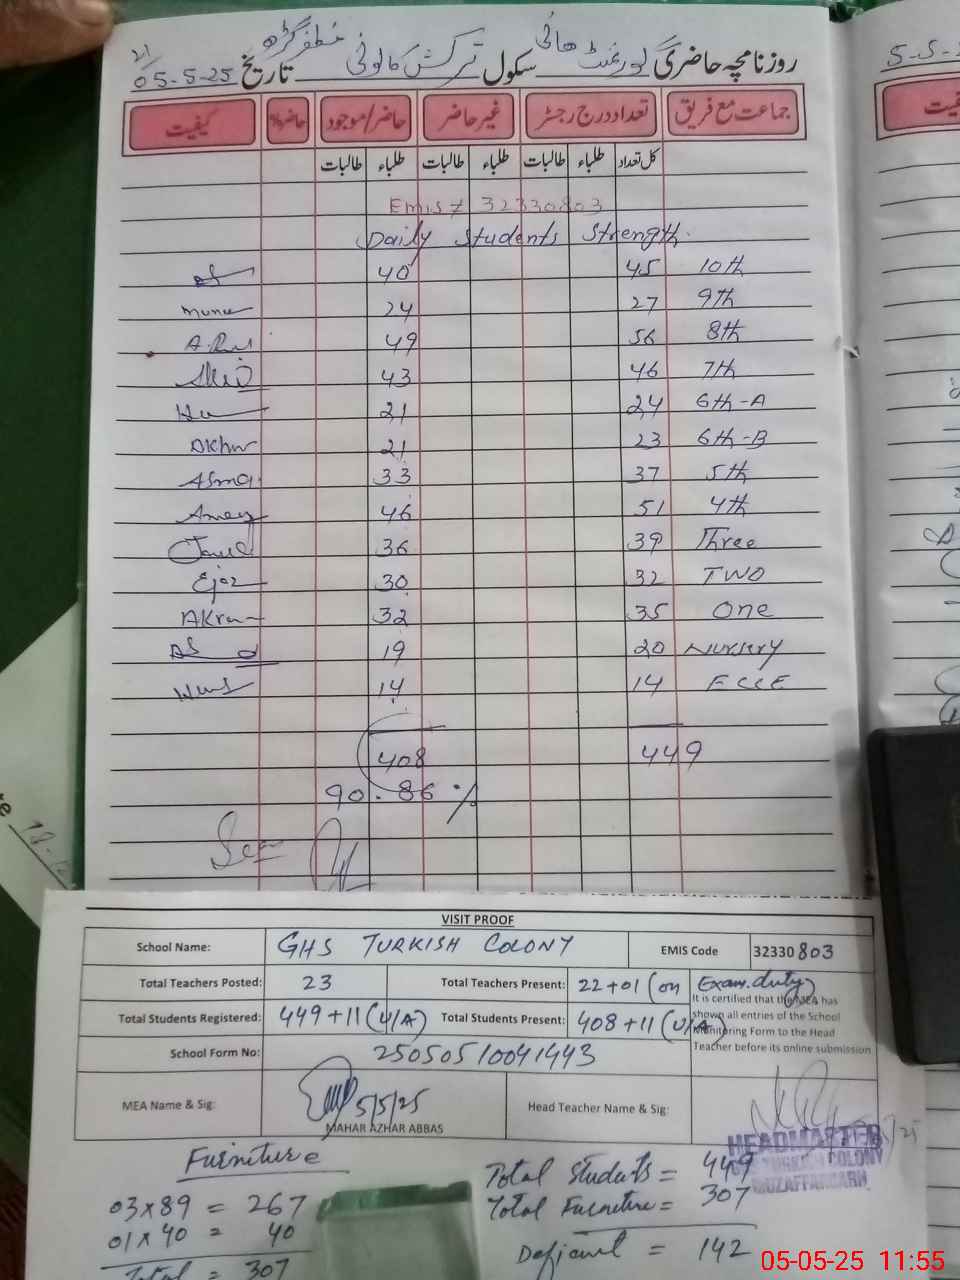 روزنامچہ حاضری گورنمنٹ ہائی سکول ترکش کالونی مظفر گڑھ تاریخ 05-5-25
جماعت مع فریق تعداد درج رجسٹر غیر حاضر حاضر/موجود حاضر% کیفیت
کل تعداد طلباء طالبات طلباء طالبات طلباء طالبات
Emis # 32330803
Daily Students Strength.
40 45 10th
24 27 9th
49 56 8th
43 46 7th
21 24 6th-A
21 23 6th-B
Asma 33 37 5th
46 51 4th
36 39 Three
Ejaz 30 32 TWO
Akram 32 35 One
19 20 Nursery
14 14 ECCE
408 449
90.86 %
VISIT PROOF
School Name: GHS TURKISH COLONY EMIS Code 32330803
Total Teachers Posted: 23 Total Teachers Present: 22+01 (on Exam.duty)
Total Students Registered: 449+11 (U/A) Total Students Present: 408+11 (U/A)
It is certified that the MEA has
shown all entries of the School
Monitoring Form to the Head
Teacher before its online submission
School Form No: 25050510041443
MEA Name & Sig: 5/5/25 Head Teacher Name & Sig:
MAHAR AZHAR ABBAS
HEADMASTER
TURKISH COLONY
MUZAFFARGARH
Furniture
03x89 = 267
01x40 = 40
Total = 307
Total Students = 449
Total Furniture = 307
Deficient = 142
05-05-25 11:55